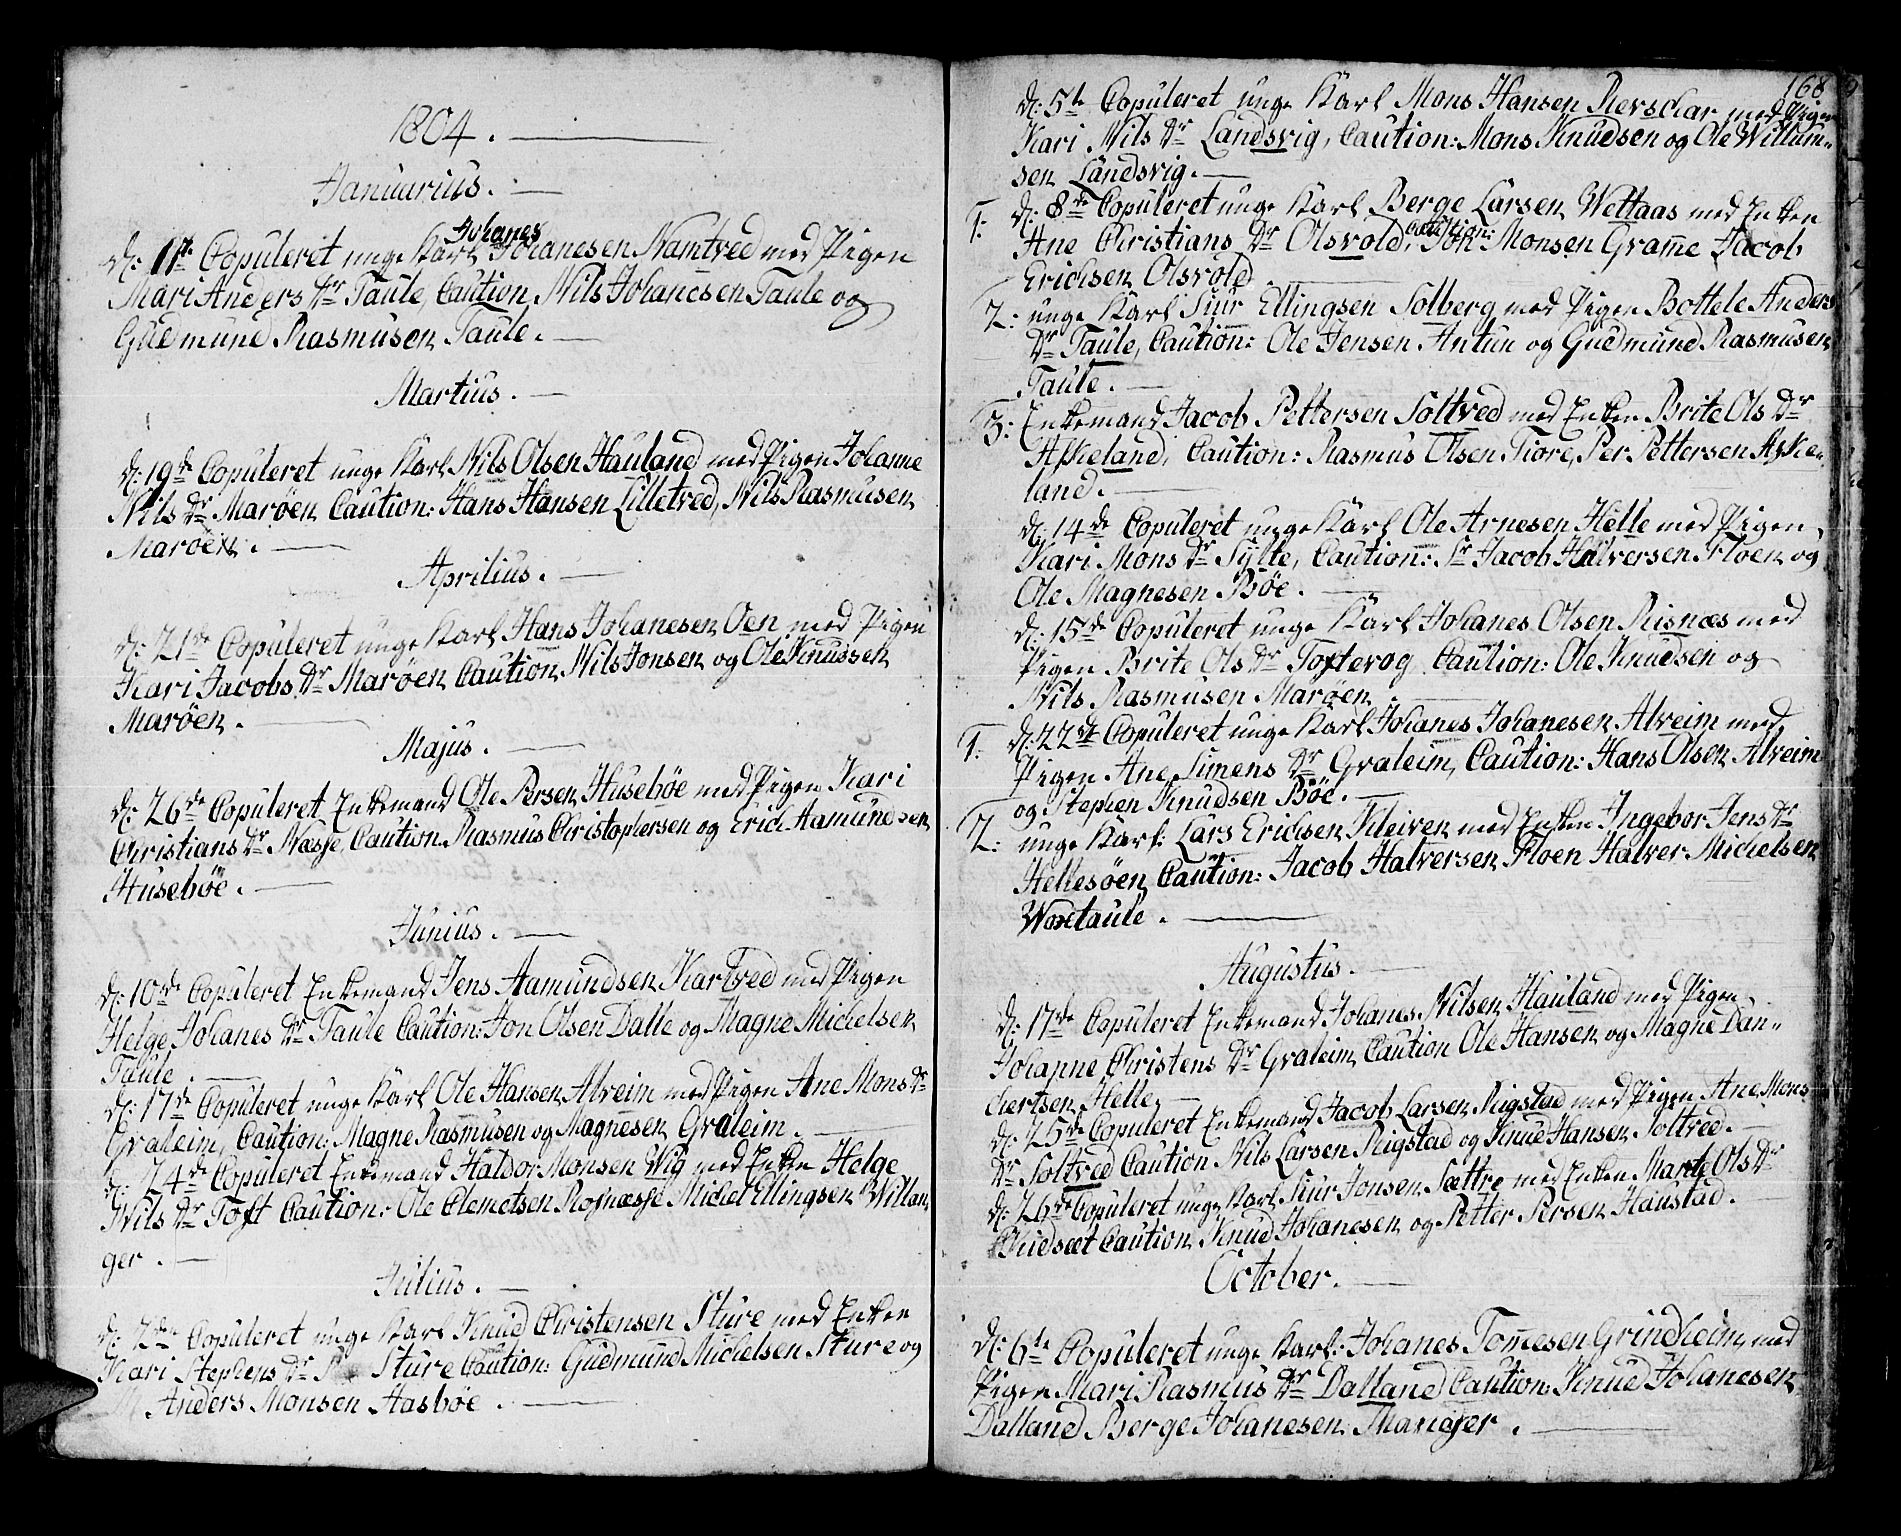 1804.
Januarius.
Johanes
d: 11te Copuleret unge Karl Johanesen Namtved med Pigen
Mari Anders Dr Taule, Caution Nils Johanesen Taule og
Gudmund Rasmusen Taule.
Martius.
d: 19de Copuleret unge Karl Nils Olsen Hauland med Pigen Johanne
Nils Dr Marøen Caution: Hans Hansen Lilletved, Nils Rasmusen
Marøen.
Aprilius.
d: 21de Copuleret unge Karl Hans Johanesen Oen med Pigen
Kari Jacobs Dr Marøen Caution Nils Jonsen og Ole Knudsen
Marøen.
Majus.
d: 26de Copuleret Enkemand Ole Persen Husebøe med Pigen Kari
Christians Dr Næsse Caution Rasmus Christophersen og Erich Aamundsen
Husebøe.
Junius.
d: 10de Copuleret Enkemand Jens Aamundsen Kartved med Pigen
Helge Johanes Dr Taule Caution: Jon Olsen Dalle og Magne Michelsen
Taule
d: 17de Copuleret unge Karl Ole Hansen Alveim med Pigen Ane Mons Dr
Graleim, Caution: Magne Rasmusen og Magnesen Graleim.
d: 24de Copuleret Enkemand Haldor Monsen Wig med Enken Helge
Nils Dr Toft Caution: Ole Clemetsen Rosnæsse Michel Ellingsen Willan
ger.
Julius.
d: 2den Copuleret unge Karl Knud Christensen Sture med Enken
Kari Stephens Dr Sture Caution: Gudmund Michelsen Sture og
Anders Monsen Aasbøe.
168
d: 5te Copuleret unge Karl Mons Hansen Rerschar med Pigen
Kari Nils Dr Landsvig, Caution: Mons Knudsen og Ole Willum-
sen Landsvig.
1: d: 8de Copuleret unge Karl Berge Larsen Wettaas med Enken
Ane Christians Dr Olsvold, Caution: Jon Monsen Gram̄e Jacob
Erichsen Olsvold
2: unge Karl Siur Ellingsen Solberg med Pigen Bottele Anders
Dr Taule, Caution: Ole Jensen Antun og Gudmund Rasmusen
Taule.
3: Enkemand Jacob Pettersen Soltved med Enken Brite Ols Dr
Askeland, Caution: Rasmus Olsen Fiore, Per Pettersen Aske-
land.
d: 14de Copuleret unge Karl Ole Arnesen Helle med Pigen
Kari Mons Dr Sylte, Caution: Sr Jacob Halversen Floen og
Ole Magnesen Bøe.
d: 15de Copuleret unge Karl Johanes Olsen Risnæs med
Pigen Brite Ols Dr Toftevog Caution: Ole Knudsen og
Nils Rasmusen Marøen
1: d: 22de Copuleret unge Karl Johanes Johanesen Alveim med
Pigen Ane Simens Dr Graleim, Caution: Hans Olsen Alveim
og Stephen Knudsen Bøe.
2: unge Karl: Lars Erichsen Kleiven med Enken Ingebor Jens Dr
Hellesøen Caution: Jacob Halversen Floen Halver Michelsen
Woxtaule.
Augustus.
d: 17de Copuleret Enkemand Johanes Nilsen Hauland med Pigen
Johanne Christens Dr Graleim Caution Ole Hansen og Magne Dan-
chertsen Helle.
d: 25de Copuleret Enkemand Jacob Larsen Rigstad med Pigen Ane Mons
Dr Soltved Caution Nils Larsen Rigstad og Knud Hansen Soltved.
d: 26de Copuleret unge Karl Siur Jonsen Sættre med Enken Marite Ols Dr
Kidsæt Caution Knud Johanesen og Petter Persen Haustad.
October.
d: 6te Copuleret unge Karl: Johanes Tom̄esen Grindheim med
Pigen Mari Rasmus Dr Dalland Caution: Knud Johanesen
Dalland Berge Johanesen Manger.